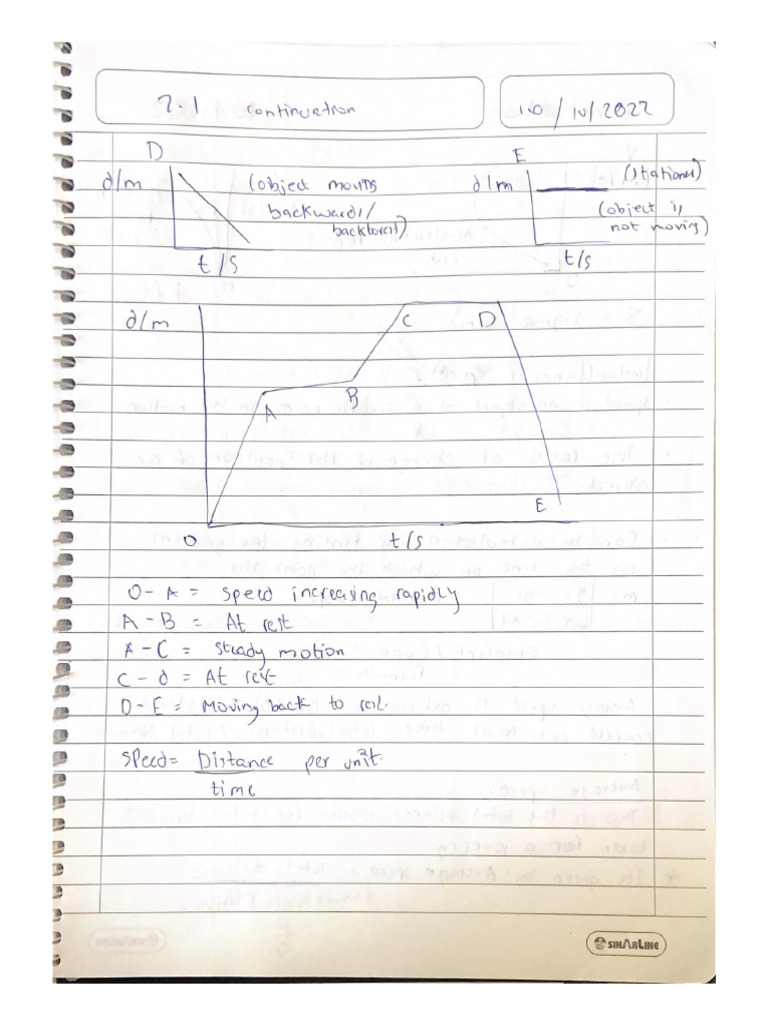 2.1 continuation
10/10/2022
D
E
d/m
(object moving
backwards/
backward)
d/m
(stationary)
(object is
not moving)
t/s
t/s
d/m
C
D
A
B
E
O
t/s
O-A = speed increasing rapidly
A-B = At rest
A-C = Steady motion
C-d = At rest
D-E = Moving back to rest.
Speed = Distance per unit.
time
SINARLINE